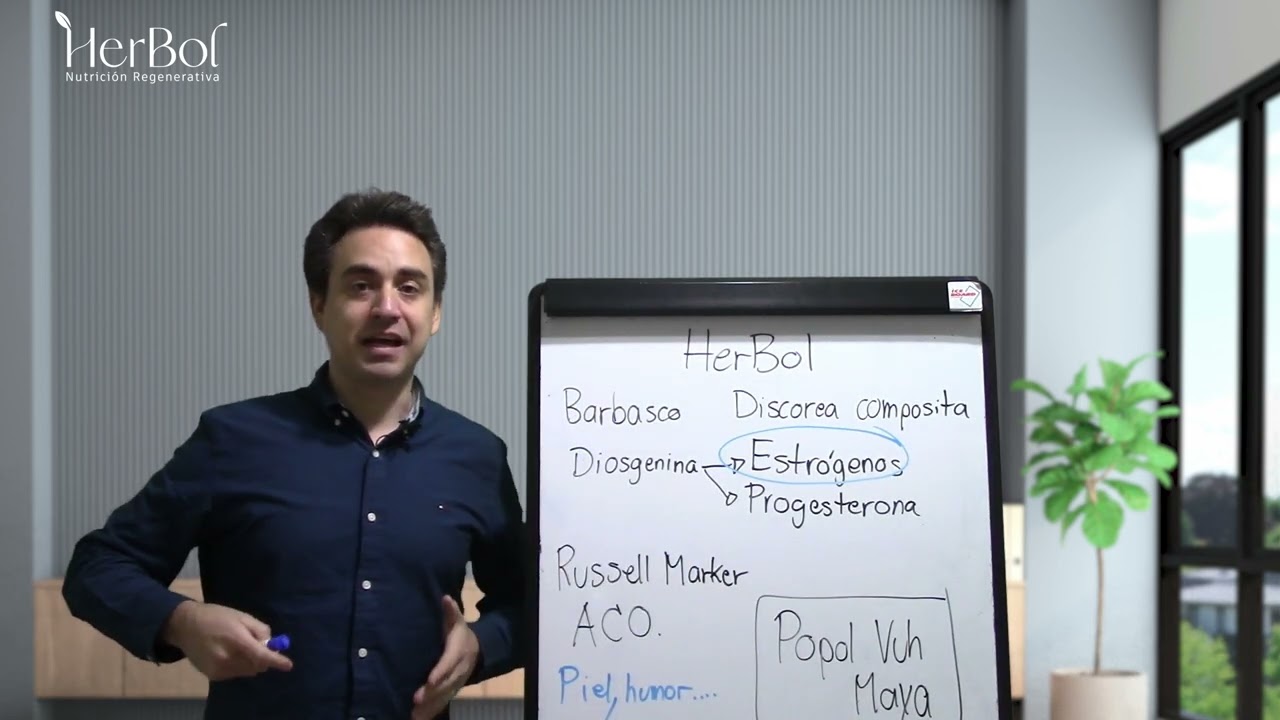 HerBol
Nutrición Regenerativa
HerBol
Barbasco Discorea composita
Diosgenina Estrógenos
Progesterona
Russell Marker
ACO.
Piel, humor....
Popol Vuh
Maya
ICE BOARD